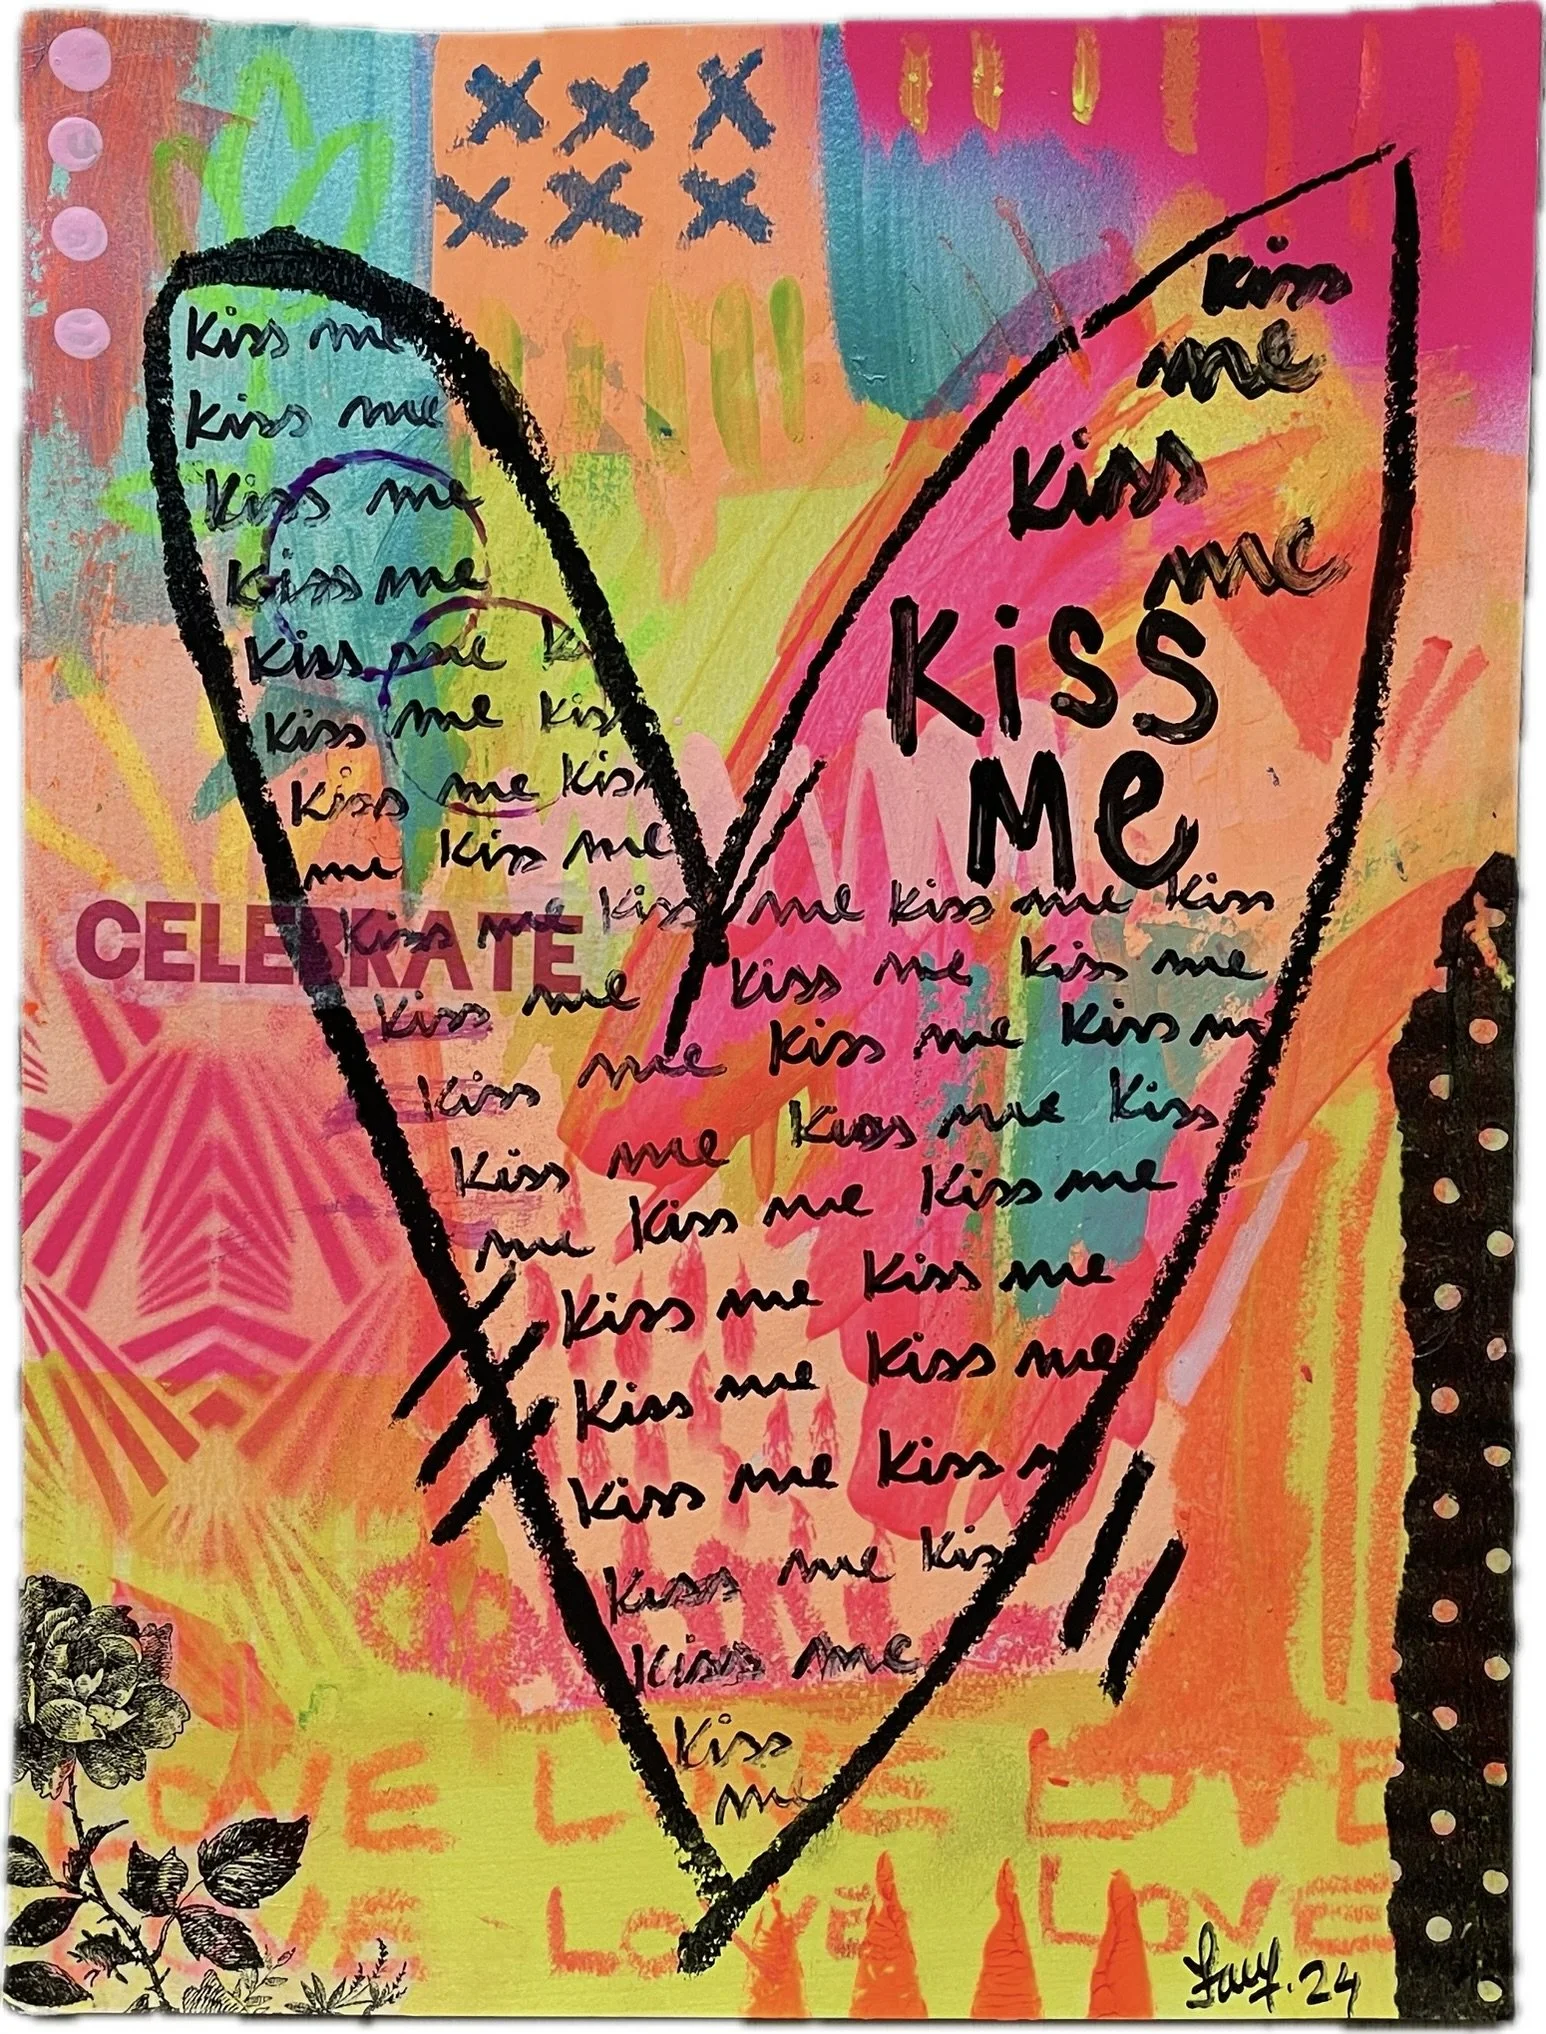 Kiss
me
Kiss
me
Kiss
me
Kiss me
Kiss me
Kiss me
Kiss me
Kiss me K
Kiss me Kis
Kiss me Kis
me Kiss me
CELEBRATE
Kiss me Kiss me Kiss me Kiss
Kiss me Kiss me Kiss me
Kiss me Kiss me Kiss m
Kiss me Kiss me Kiss
me Kiss me Kiss me
Kiss me Kiss me
Kiss me Kiss me
Kiss me Kiss m
Kiss me Kis
Kiss me
Kiss
me
LOVE LOVE LOVE
LOVE LOVE LOVE
24